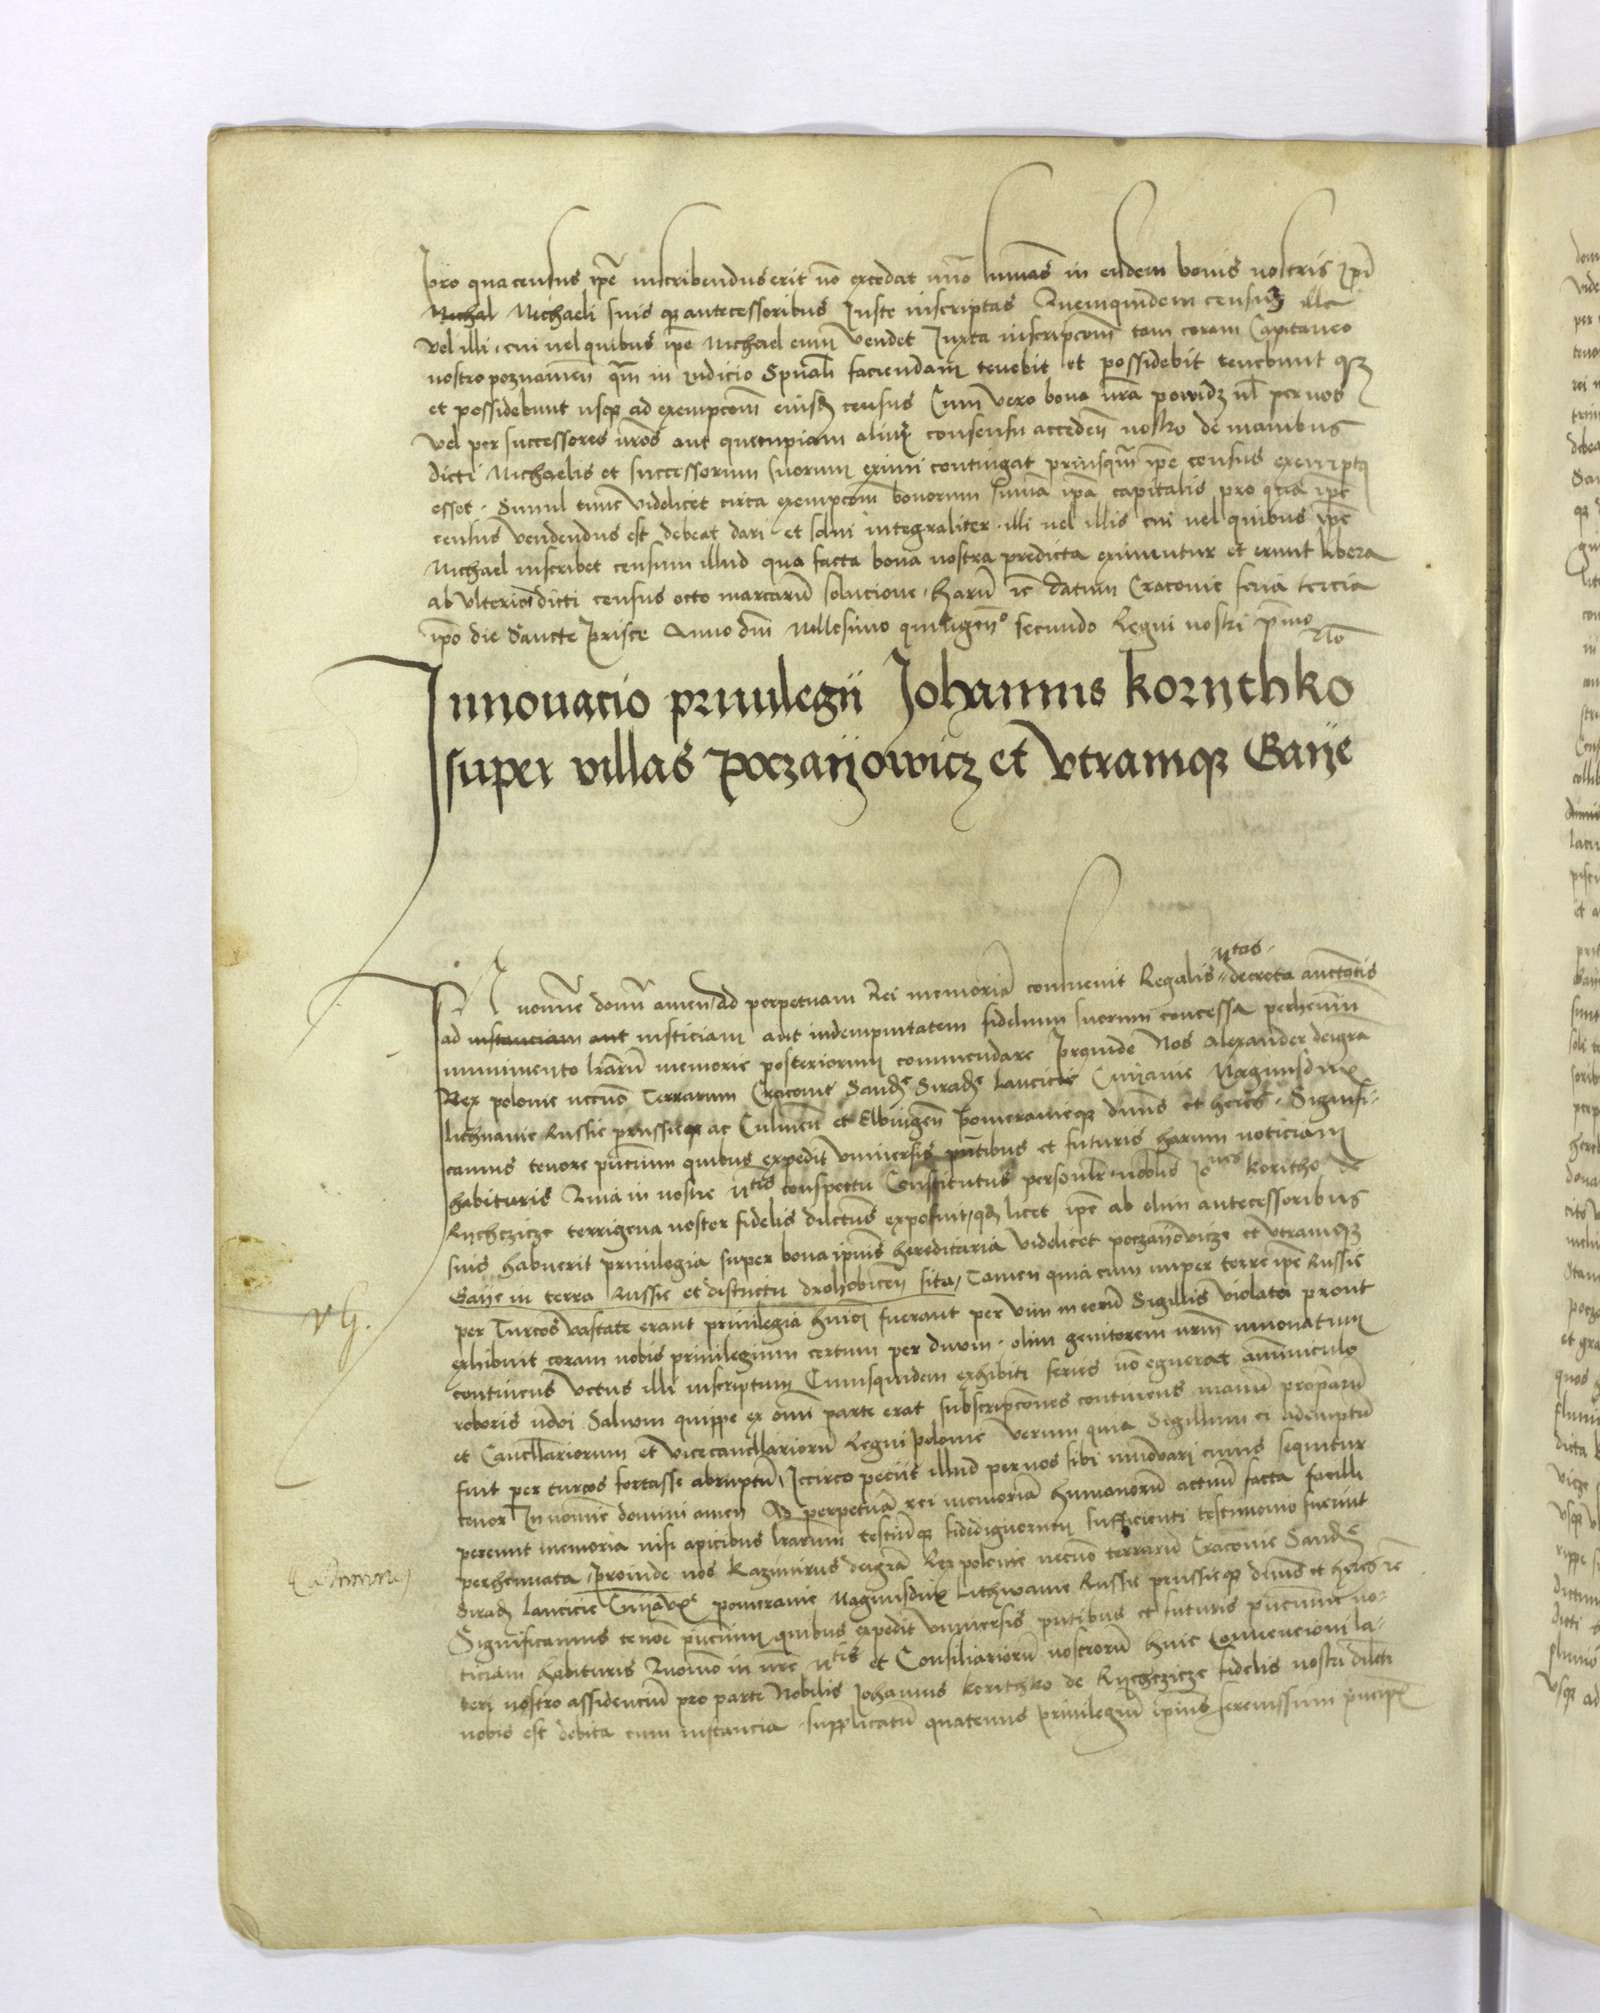 pro qua census ipē inscribendus erit nō excedat im̄o sum̄as in eisdem bonis nostris ip̄i
Michal Michaeli suis qz antecessoribus Juste inscriptas Quemquidem censuz ille
vel illi cui vel quibus ipē Michael eum vendet Juxta inscripcom̄ tam coram Capitaneo
nostro poznanien̄ qm̄ in iudicio Spūali faciendam tenebit et possidebit tenebunt qz
et possidebunt usqz ad exempcom̄ eiusdē census Cum vero bona nr̄a powidz vl̄ per nos
vel per successores nr̄os aut quempiam aliuz consensu acceden̄ nostro de manibus
dicti Michaelis et successorum suorum eximi contingat priusqm̄ ipē census exemptus
esset. Simul tunc videlicet circa exempcom̄ bonorum sum̄a ipā capitalis pro qua ipē
census vendendus est debeat dari et solui integraliter illi vel illis cui vel quibus ipē
Michael inscribet censum illud quo facto bona nostra predicta eximentur et erunt libera
ab ulteriori dicti census octo marcarū solucione. Harū zc̄ datum Cracouie feria tercia
ipō die Sancte Prisce Anno dn̄i Millesimo quingen̄o secundo Regni nostri primo
Nō
Innouacio priuilegii Johannis Kornthko
super villas Poczayowicz et vtramqz Gaye
In noīe domī amen ad perpetuam Rei memoriā conuenit Regalis mtās decreta auctotis
ad instanciam aut iusticiam aut indempnitatem fidelium suorum concessa perhenni
munimento lr̄arū memorie posteriorum commendare Proinde Nos Alexander deigrā
Rex polonie necnō Terrarum Cracouie Sand̄ Sirad̄ Lancicie Cuyauie Magnusdux
lithuanie Russie prussieqz ac Culmen̄ et Elbingen̄ Pomeranieqz dn̄s et heres. Signifi-
camus tenore pn̄cium quibus expedit vniuersis pn̄tibus et futuris harum noticiam
habituris Quia in nostre mtis conspectu Constitutus personlr̄ nobilis Jo nes Koritho de
Rycheczicze terrigena noster fidelis dilectus exposuit qd̄ licet ipē ab olim antecessoribus
suis habuerit priuilegia super bona ipius hereditaria videlicet poczayowicze et vtramqz
Gaye in terra Russie et districtu drohobicen̄ sita, Tamen quia cum nuper terre ipē Russie
per Turcos vastate erant priuilegia hmōi fuerant per vim in eorū Sigillis violata prout
exhibuit coram nobis priuilegium certum per diuum olim genitorem nrm̄ innouatum
continens vetus illi inscriptum Cuiusquidem exhibiti series nō eguerat am̄iniculo
roboris vdoi Saluum quippe ex om̄i parte erat subscripcones continens manū propriarū
et Cancellariorum et vicecancellariorū Regni polonie verum quia Sigillum ei ademptū
fuit per turcos fortasse abruptū, Iccirco peciit illud per nos sibi innouari cuius sequitur
tenor In nomīe domini amen Ad perpetuā rei memoriā humanorū actuū facta facilli
pereunt memoria nisi apicibus lr̄arum testiūqz fidedignorum sufficienti testimonio fuerint
perhennata, Proinde nos Kazimirus deigrā Rex polonie necnō terrarū Cracouie Sand̄
Sirad̄ Lancicie Cuyauie pomeranie Magnusdux Lithwanie Russie prussieqz dn̄s et heres zc̄
Significamus tenoe pn̄cium quibus expedit vniuersis pn̄tibus et futuris pn̄cium no-
ticiam habituris Quomō in nr̄e mtis et Consiliariorū nostrorū huic Conuencioni la-
teri nostro assidenciū pro parte Nobilis Johannis Korithko de Rycheczicze fidelis nostri dilecti
nobis est debita cum instancia supplicatū quatenus priuilegiū ipius serenissimi principis